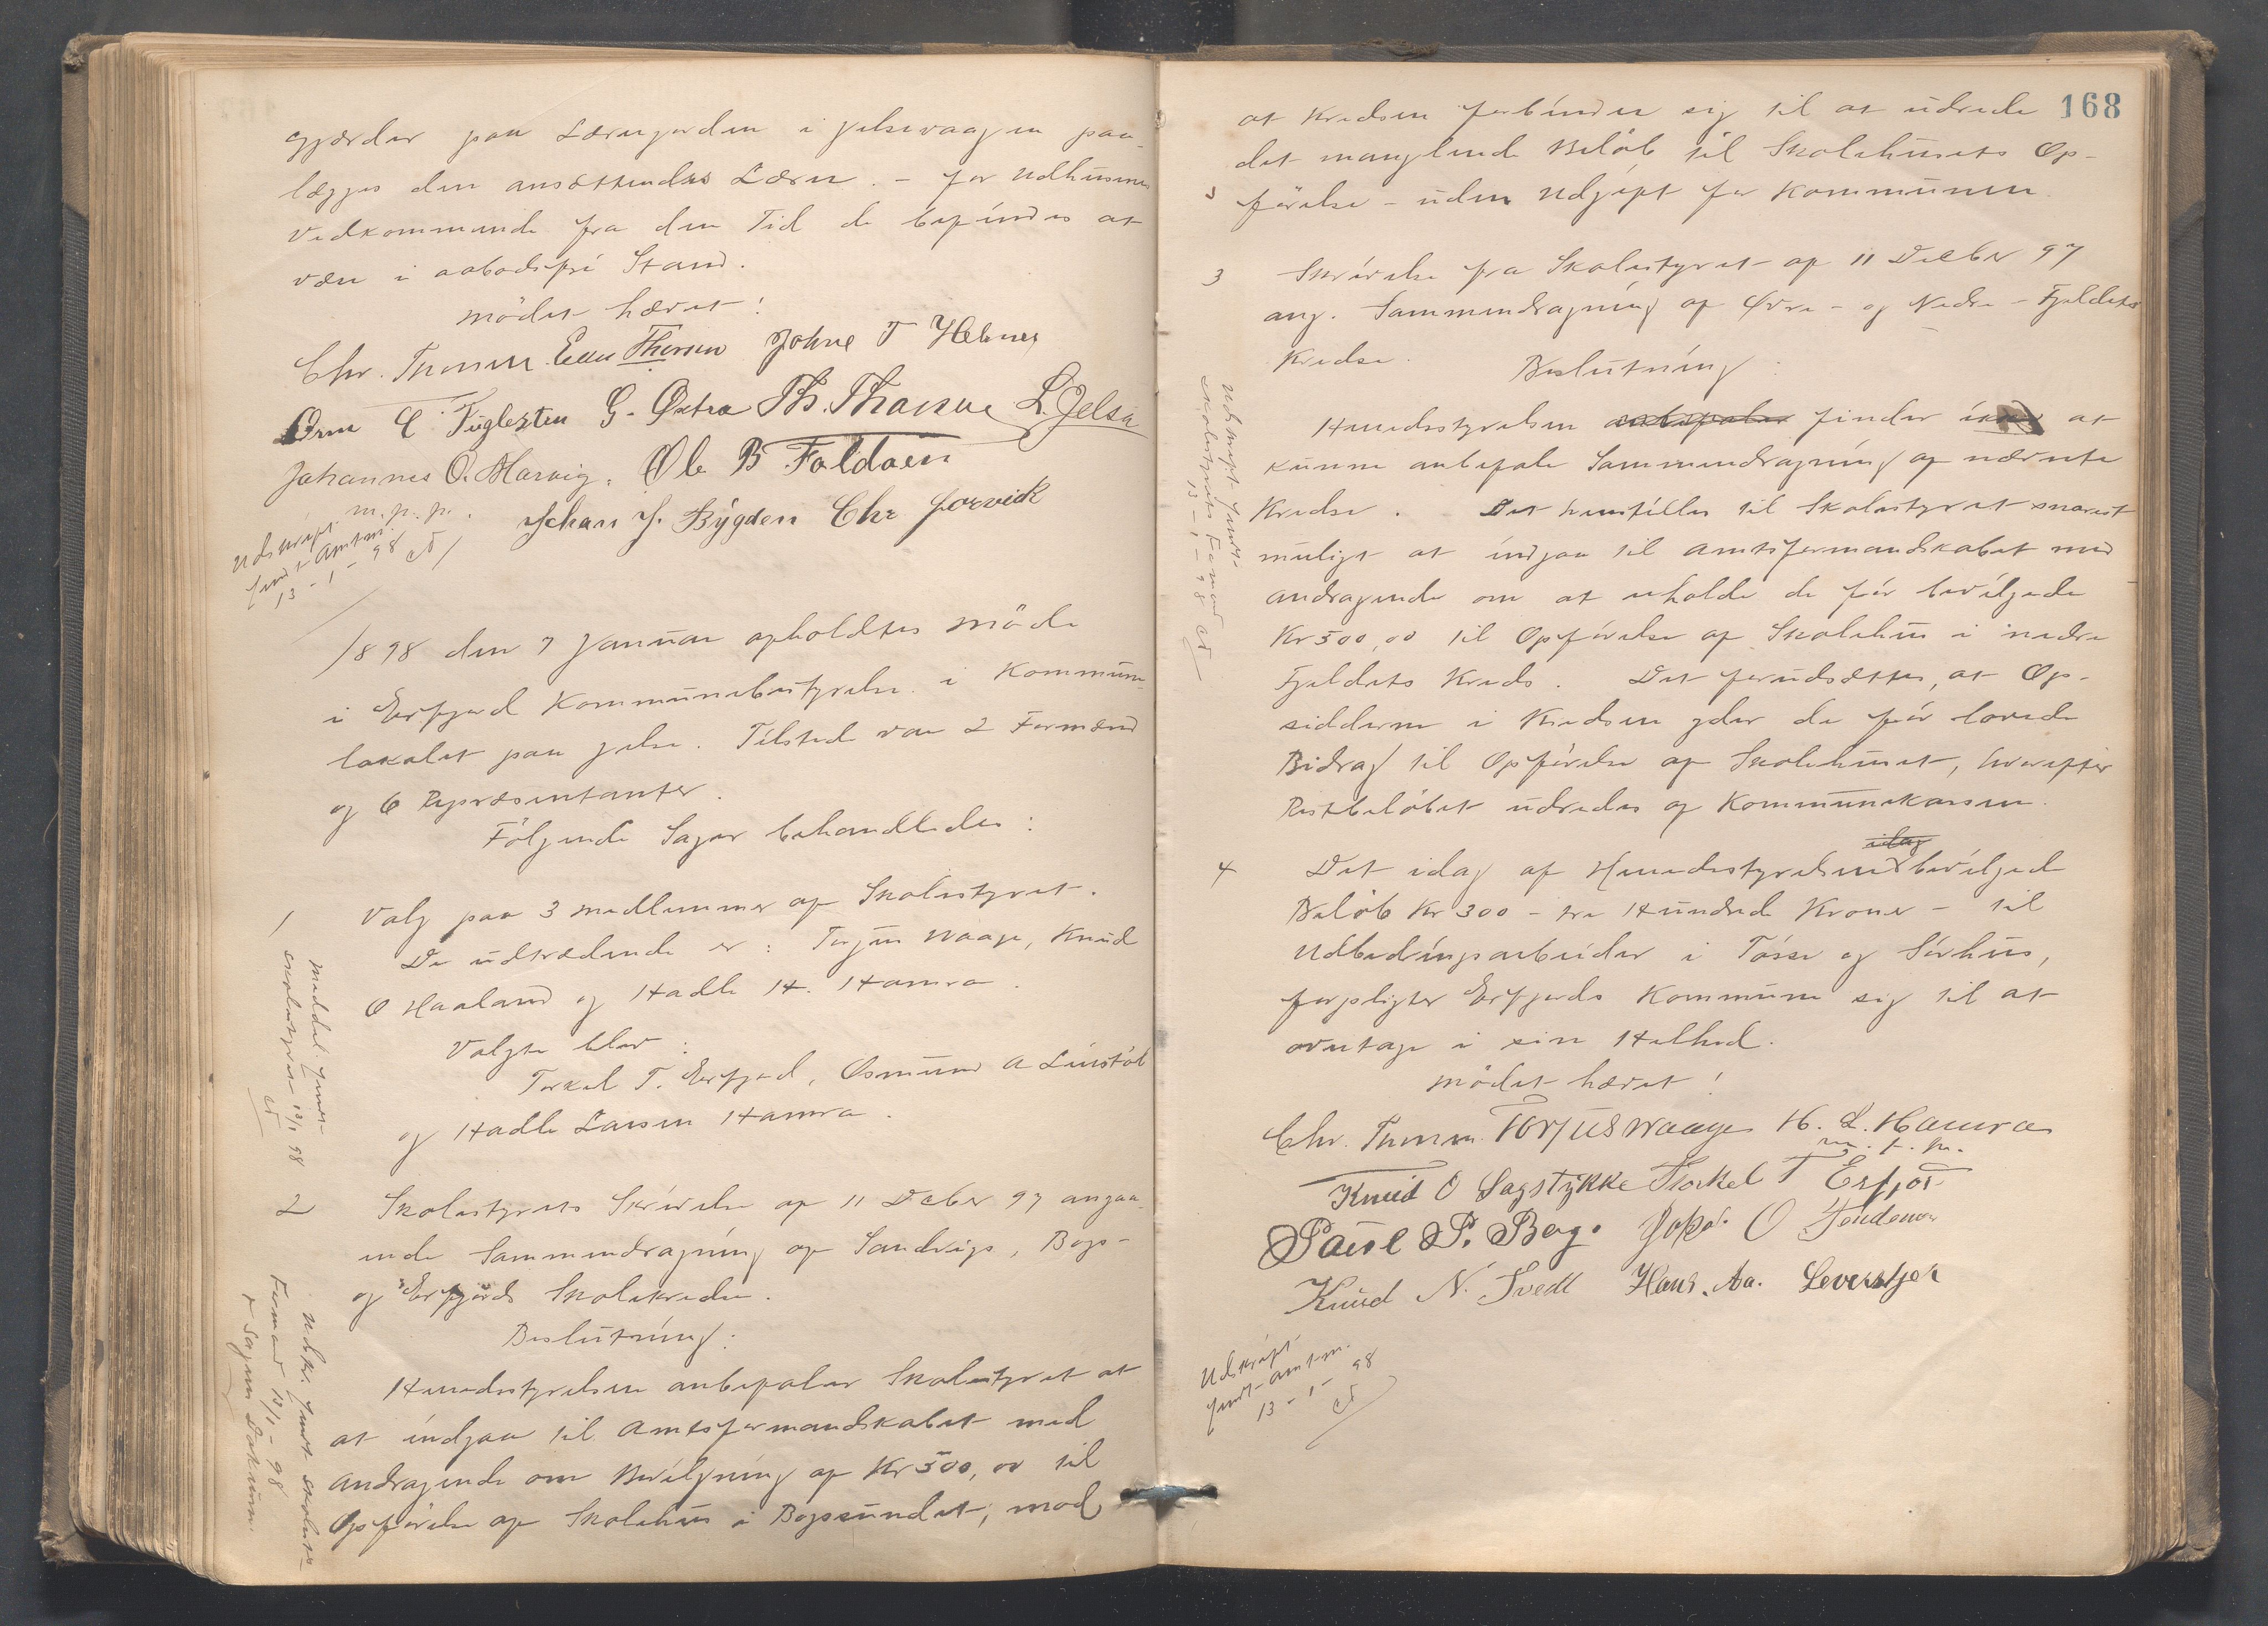 gjærder paa Lærergarden i Jelsevaagen paa-
lægges den ansættendes Lærer. – for Udhusenes
Vedkommende fra den Tid de befindes at
være i aabodsfri Stand.
Mödet hævet!
Chr. Thorsen Johne T Hebnes
Orm E Fuglesten G. Østra L. Jelsa
Johannes O. Marvig. Ole B Foldøen
m. p. p. Johan J. Bÿgden Chr Jorvick
Udskrift
sendt Amtm.
13 – 1 – 98
CT
1898 den 7 Januar afholdtes Möde
i Erfjord Kommunebestyrelse i Kommune-
lokalet paa Jelse. Tilstede var 2 Formænd
og 6 Repræsentanter.
Fölgende Sager behandledes:
1 Valg paa 3 Medlemmer af Skolestyret.
De udtrædende er: Torjus Waage, Knud
O Haaland og Hadle H. Hamra.
Valgte blev:
Torkel T. Erfjord, Osmund A Linstöl
og Hadle Larsen Hamra.
Meddel. sendt
skolestyret 13/1 98
CT
2 Skolestyrets Skrivelse af 11 Decbr 97 angaa-
ende Sammendragning af Sandvigs, Bogs-
og Erfjords Skolekredse.
Beslutning:
Herredsstyrelsen anbefaler Skolestyret at
at indgaa til Amtsformandskabet med
Andragende om Bevilgning af Kr 500,00 til
Opförelse af Skolehus i Bogsundet, mod
Udskr. sendt skolest.
Formand 13/1 – 98
+ Sagens Dokum.
168
at Kredsen forbinder sig til at udrede
det manglende Belöb til Skolehusets Op-
förelse – uden Udgift for Kommunen.
3 Skrivelse fra Skolestyret af 11 Decbr 97
ang. Sammendragning af Övre- og Nedre-Fjeldets
Kredse.
Beslutning:
Herredsstyrelsen anbefaler finder ikke at
kunne anbefale Sammendragning af nævnte
Kredse. Det henstilles til Skolestyret snarest
muligt at indgaa til Amtsformandskabet med
Andragende om at erholde de för bevilgede
Kr 500,00 til Opförelse af Skolehus i nedre
Fjeldets Kreds. Det forudsættes, at Op-
sidderne i Kredsen yder de för lovede
Bidrag til Opförelse af Skolehuset, hvorefter
Restbelöbet udredes af Kommunekassen.
Udskrift sendt
skolestyrets Formand
13 – 1 – 98 CT
idag
4 Det idag af Herredsstyrelsen bevilgede
Belöb Kr 300 – tre Hundrede Kroner – til
Udbedringsarbeider i Tösse og Sörhus,
forpligter Erfjords Kommune sig til at
overtage i sin Helhed.
Mödet hævet!
Chr. Thorsen. Torjus Waage H. L. Hamra
m. f. p.
Knud O Sagstÿkke Torkel T Erfjor
Paul P. Berg.
Knud N. Tvedt Hans. Aa.
Udskrift
sendt Amtm.
13 – 1 – 98
CT